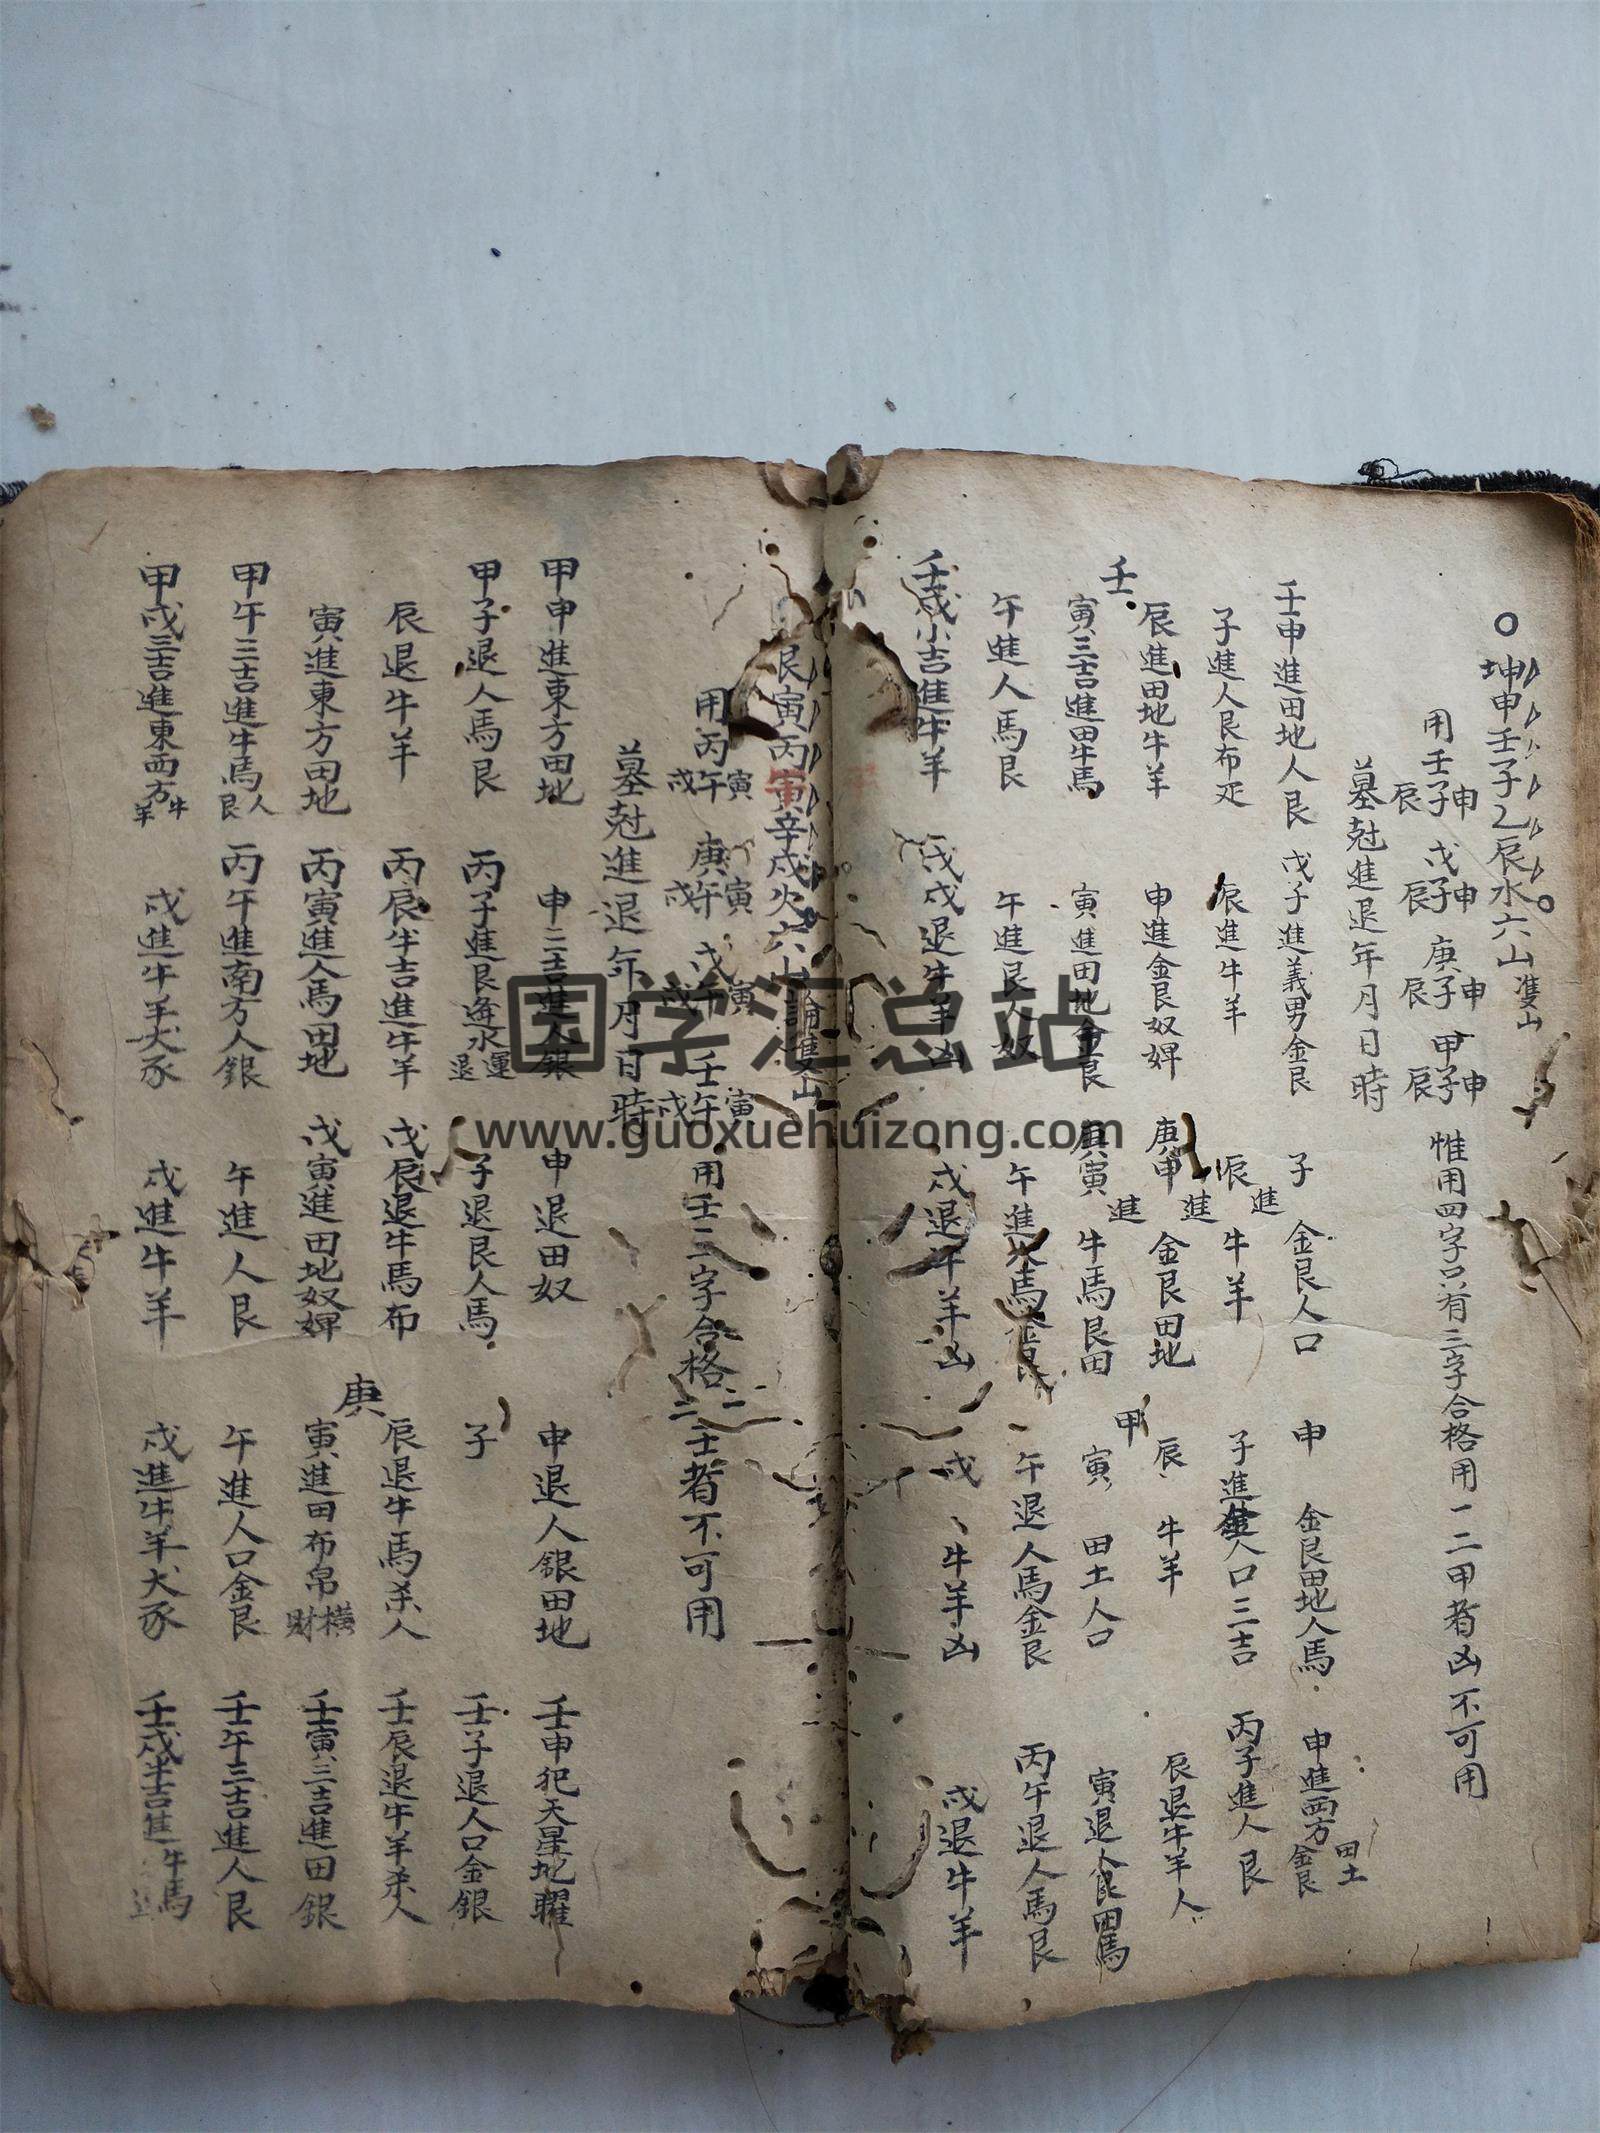 坤申壬子乙辰水六山雙山
用壬申子辰 戊申子辰 庚申子辰 甲申子辰 惟用四字只有三字合格用一二甲者凶不可用
墓尅進退年月日時
壬申進田地人艮 戊子進義男金艮 子金艮人口 申金艮田地人馬 申進西方田土金艮
子進人艮布疋 辰進牛羊 辰進牛羊 子進人口三吉 丙子進人艮
辰進田地牛羊 申進金艮奴婢 庚申進金艮田地 辰牛羊 辰退牛羊人
壬寅三吉進田牛馬 寅進田地金艮 庚寅進牛馬艮田 甲寅田土人口 寅退人艮田馬
午進人馬艮 午進艮人奴 午進人馬金艮 午退人馬金艮 丙午退人馬艮
壬戌小吉進牛羊 戊戌退牛羊凶 戌退牛羊凶 戌牛羊凶 戌退牛羊
艮寅丙寅辛戌火六山論雙山
用丙寅午戌 庚寅午戌 戊寅午戌 壬寅午戌 用壬二字合格二三壬者不可用
墓尅進退年月日時
甲申進東方田地 申三吉進人銀 申退田奴 申退人銀田地 壬申犯天星地曜
甲子退人馬艮 丙子進艮逢水運退 子退艮人馬 子 壬子退人口金銀
辰退牛羊 丙辰半吉進牛羊 戊辰退牛馬布 辰退牛馬杀人 壬辰退牛羊杀人
寅進東方田地 丙寅進人馬田地 戊寅進田地奴婢 庚寅進田布帛橫財 壬寅三吉進田銀
甲午三吉進牛馬人艮 丙午進南方人銀 午進人艮 午進人口金艮 壬午三吉進人艮
甲戌三吉進東西方牛羊 戌進牛羊犬豕 戌進牛羊 戌進牛羊犬豕 壬戌半吉進牛馬
国学汇总站
www.guoxuehuizong.com